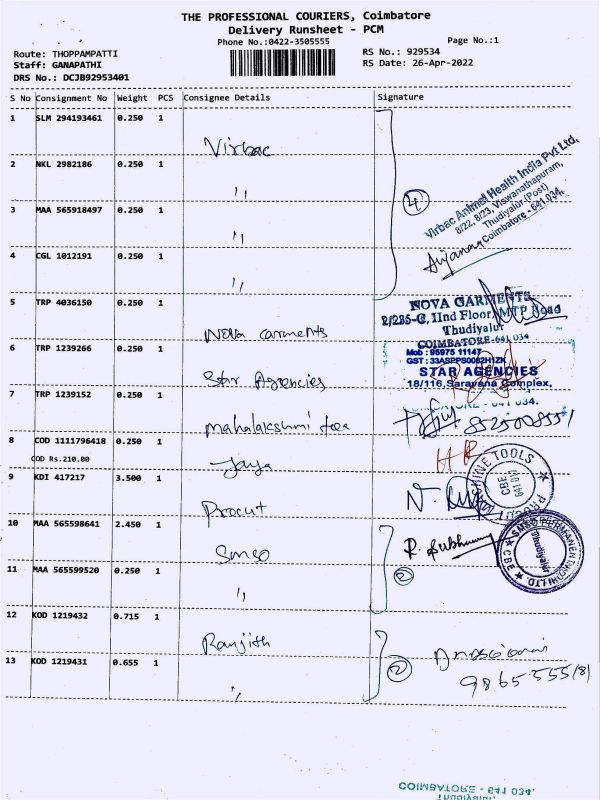 THE PROFESSIONAL COURIERS, Coimbatore
Delivery Runsheet - PCM
Phone No.:0422-3505555 Page No.:1
Route: THOPPAMPATTI RS No.: 929534
Staff: GANAPATHI RS Date: 26-Apr-2022
DRS No.: DCJB92953401
S No Consignment No Weight PCS Consignee Details Signature
1 SLM 294193461 0.250 1
Virbac
2 NKL 2982186 0.250 1
"
3 MAA 565918497 0.250 1
"
4 CGL 1012191 0.250 1
"
4
Virbac Animal Health India Pvt Ltd,
8/22, 8/23, Viswanathapuram,
Thudiyalur (Post)
Coimbatore - 641 034.
5 TRP 4036150 0.250 1
Nova Garments
NOVA GARMENTS
2/235-C, IInd Floor, MTP Road
Thudiyalur
COIMBATORE-641 034
6 TRP 1239266 0.250 1
Star Agencies
Mob : 95975 11147
STAR AGENCIES
18/116, Saravana Complex,
COIMBATORE - 641 034.
7 TRP 1239152 0.250 1
Mahalakshmi tea
8 COD 1111796418 0.250 1
COD Rs.210.00
Jaya
9 KDI 417217 3.500 1
Procut
TOOLS
CBE
641 034
10 MAA 565598641 2.450 1
Smso
11 MAA 565599520 0.250 1
"
2
Thudiyalur
12 KOD 1219432 0.715 1
Ranjith
13 KOD 1219431 0.655 1
"
2
COIMBATORE - 641 034.
Thudiyalur,